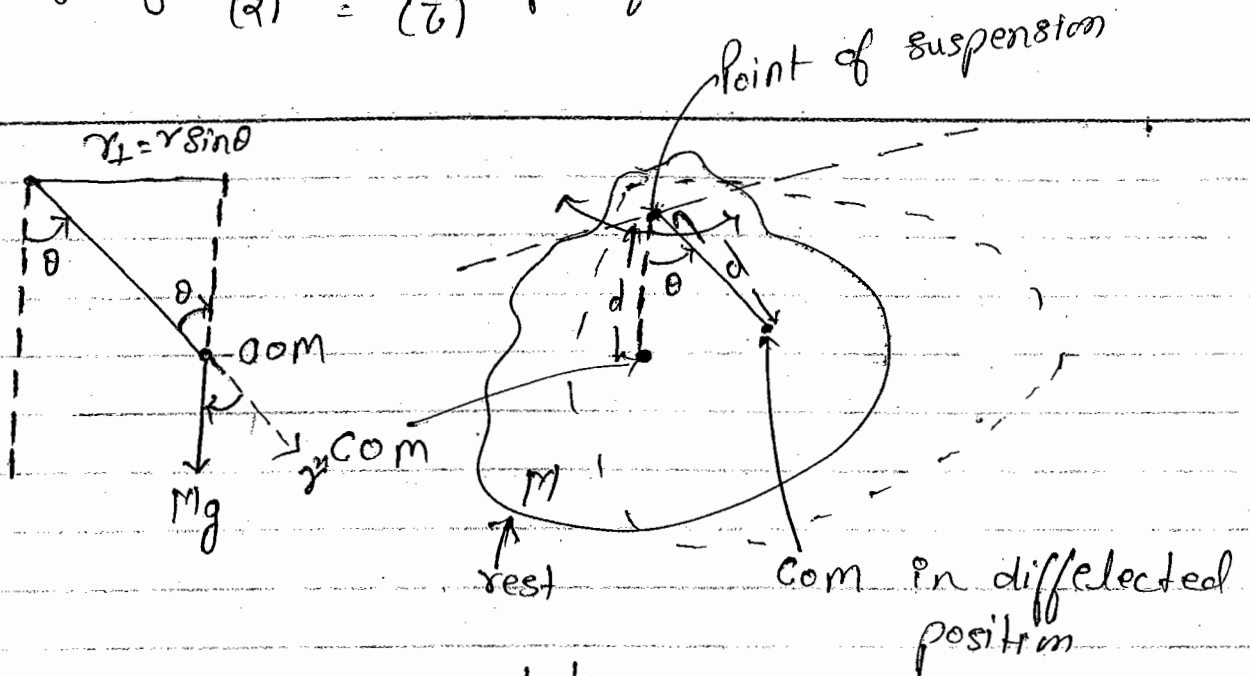 (α) = (τ)
Point of suspension
r⊥ = r sinθ
θ
θ
d
θ
d
COM
COM
M
Mg
rest
Com in diffelected
position